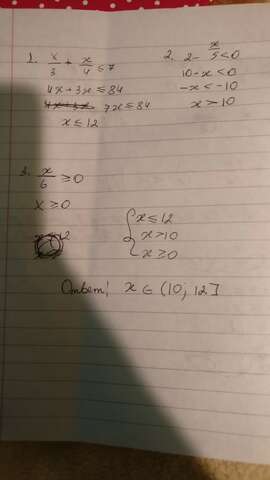 1. x/3 + x/4 ≤ 7
4x + 3x ≤ 84
7x ≤ 84
x ≤ 12
2. 2 - x/5 < 0
10 - x < 0
-x < -10
x > 10
3. x/6 ≥ 0
x ≥ 0
{ x ≤ 12
x > 10
x ≥ 0
Ответ: x ∈ (10; 12]